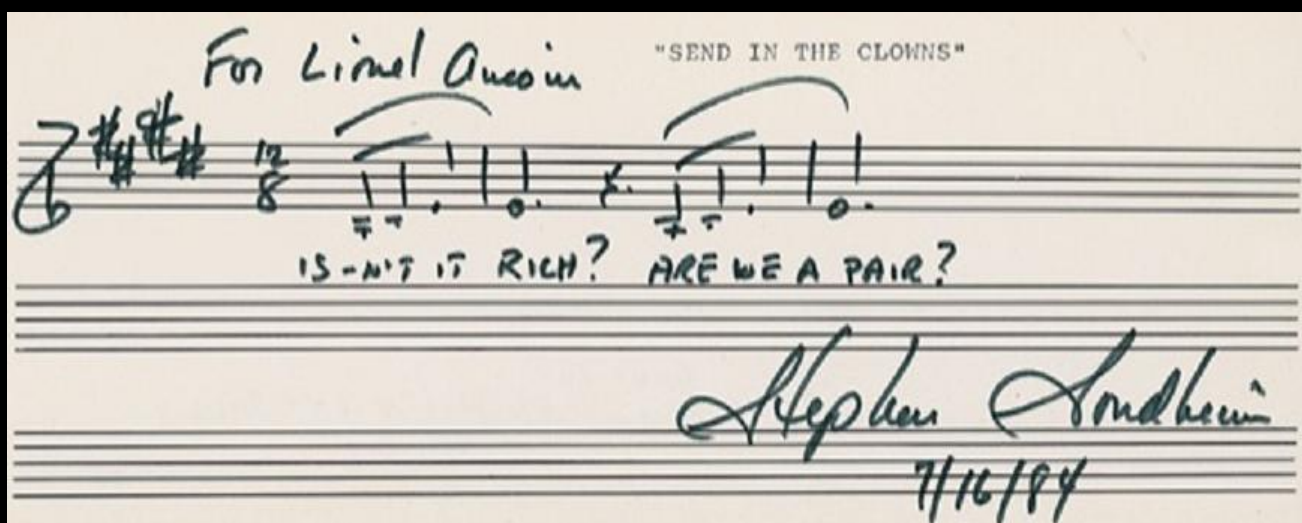 For Lionel Aucoin "SEND IN THE CLOWNS"
12
8
IS-N'T IT RICH? ARE WE A PAIR?
Stephen Sondheim
7/16/84